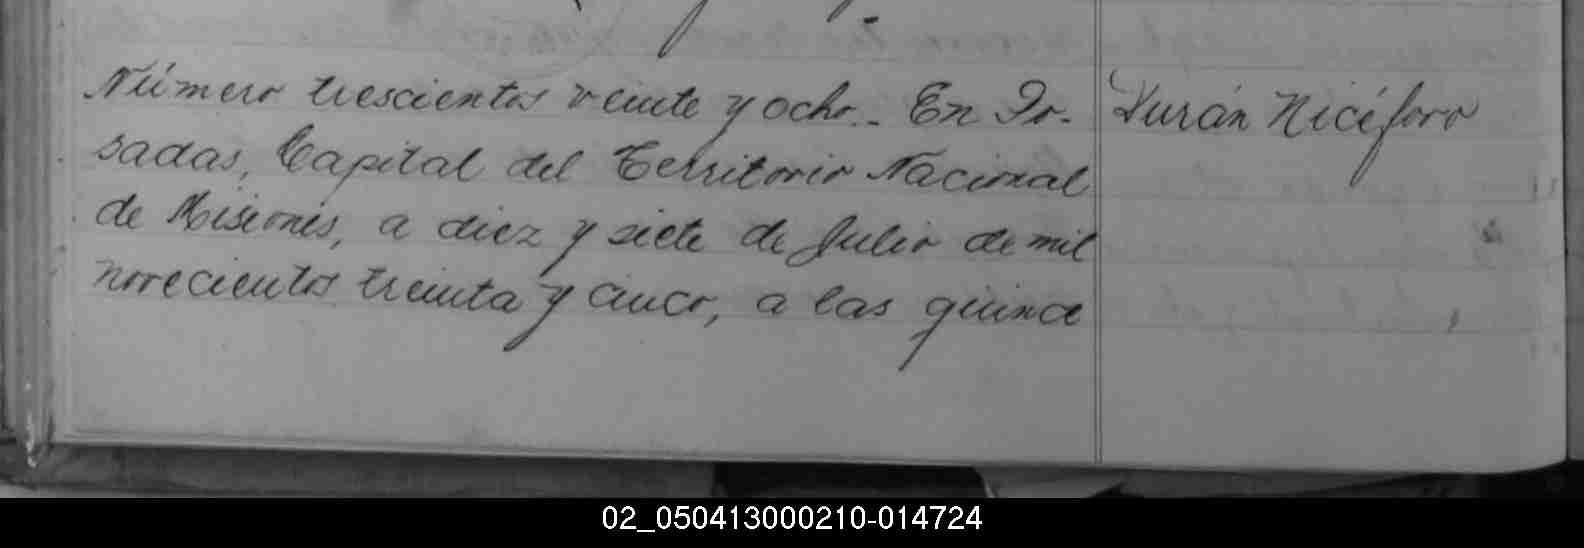 Número trescientos veinte y ocho.- En Po-
sadas, Capital del Territorio Nacional
de Misiones, a diez y siete de Julio de mil
novecientos treinta y cinco, a las quince
Durán Nicéforo
02_050413000210-014724